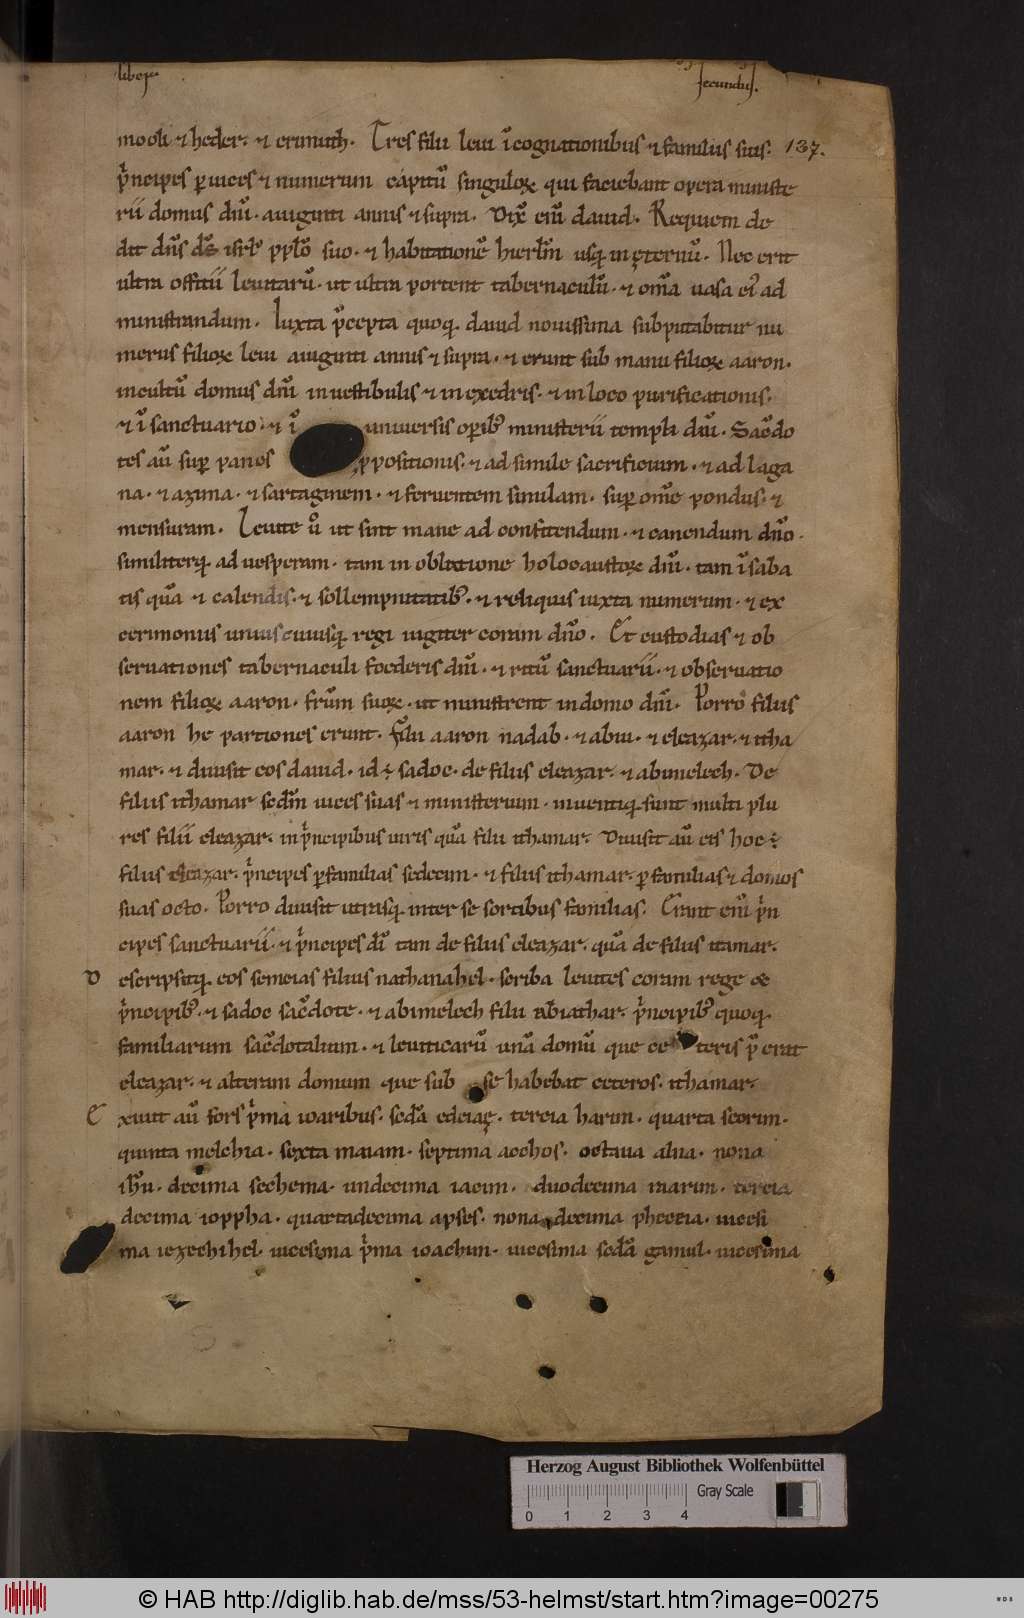 liber secundus.
mooli & heder. & erimuth. Tres filii leui ī cognationibus & familiis suis. 137.
p̄ncipes p uices & numerum capitū singuloꝝ qui faciebant opera ministe
rii domus dn̄i. a uiginti annis & supra. Dix̄ eni̅ dauid. Requiem de
dit dn̄s ds̄ isrl̄ ppl̄o suo. & habitationē hierl̄m usq; in ęternū. Nec erit
ultra offitii leuitarū. ut ultra portent tabernaculū. & om̄a uasa ei' ad
ministrandum. Iuxta p̄cepta quoq; dauid nouissima subputabitur nu
merus filioꝝ leui a uiginti annis & supra. & erunt sub manu filioꝝ aaron.
in cultū domus dn̄i in uestibulis & in exedris. & in loco purificationis.
& ī sanctuario. & ī uniuersis opib; ministerii templi dn̄i. Sac̄do
tes aū sup panes ppositionis. & ad simile sacrificium. & ad laga
na. & azima. & sartaginem. & feruentem similam. sup om̄e pondus. &
mensuram. Leuite u̅o ut sint mane ad confitendum. & canendum dn̄o.
similiterq; ad uesperam. tam in oblatione holocaustoꝝ dn̄i. tam ī saba
tis quā & calendis. & sollempnitatib;. & reliquis iuxta numerum. & ex
cerimonus uniuscuiusq; regi iugiter coram dn̄o. Et custodias & ob
seruationes tabernaculi foederis dn̄i. & ritū sanctuarii. & obseruatio
nem filioꝝ aaron. fr̄m suoꝝ. ut ministrent in domo dn̄i. Porro filiis
aaron he partiones erunt. filii aaron nadab. & abiu. & eleazar. & itha
mar. & diuisit eos dauid. id ÷ sadoc. de filiis eleazar. & abimelech. De
filiis ithamar scdm̄ uices suas & ministerium. inuentiq; sunt multi plu
res filii eleazar. in p̄ncipibus uiris quā filii ithamar. Diuisit aū eis hoc ÷
filiis eleazar. p̄ncipes p familias sedecim. & filiis ithamar. p familias & domos
suas octo. Porro diuisit utrasq; inter se sortibus familias. Erant eni̅ p̄n
cipes sanctuarii. & p̄ncipes dī tam de filiis eleazar. quā de filiis itamar.
D escripsitq; eos semeias filius nathanahel. scriba leuites coram rege &
p̄ncipib;. & sadoc sac̄dote. & abimelech filii abiathar. p̄ncipib; quoq;
familiarum sac̄dotalium. & leuiticarū unā domū que ce teris p̄ erat
eleazar. & alteram domum que sub se habebat ceteros. ithamar.
E xiuit aū sors p̄ma ioaribus. scd̄a edeiaę. tercia harim. quarta seorim.
quinta melchia. sexta maiam. septima acchos. octaua abia. nona
ih̄u. decima sechema. undecima iacim. duodecima iiarim. tercia
decima ioppha. quartadecima apses. nona decima pheceia. uicesi
ma iezechihel. uicesima p̄ma ioachim. uicesima scd̄a gamul. uicesima
Herzog August Bibliothek Wolfenbüttel
Gray Scale
0 1 2 3 4
© HAB http://diglib.hab.de/mss/53-helmst/start.htm?image=00275